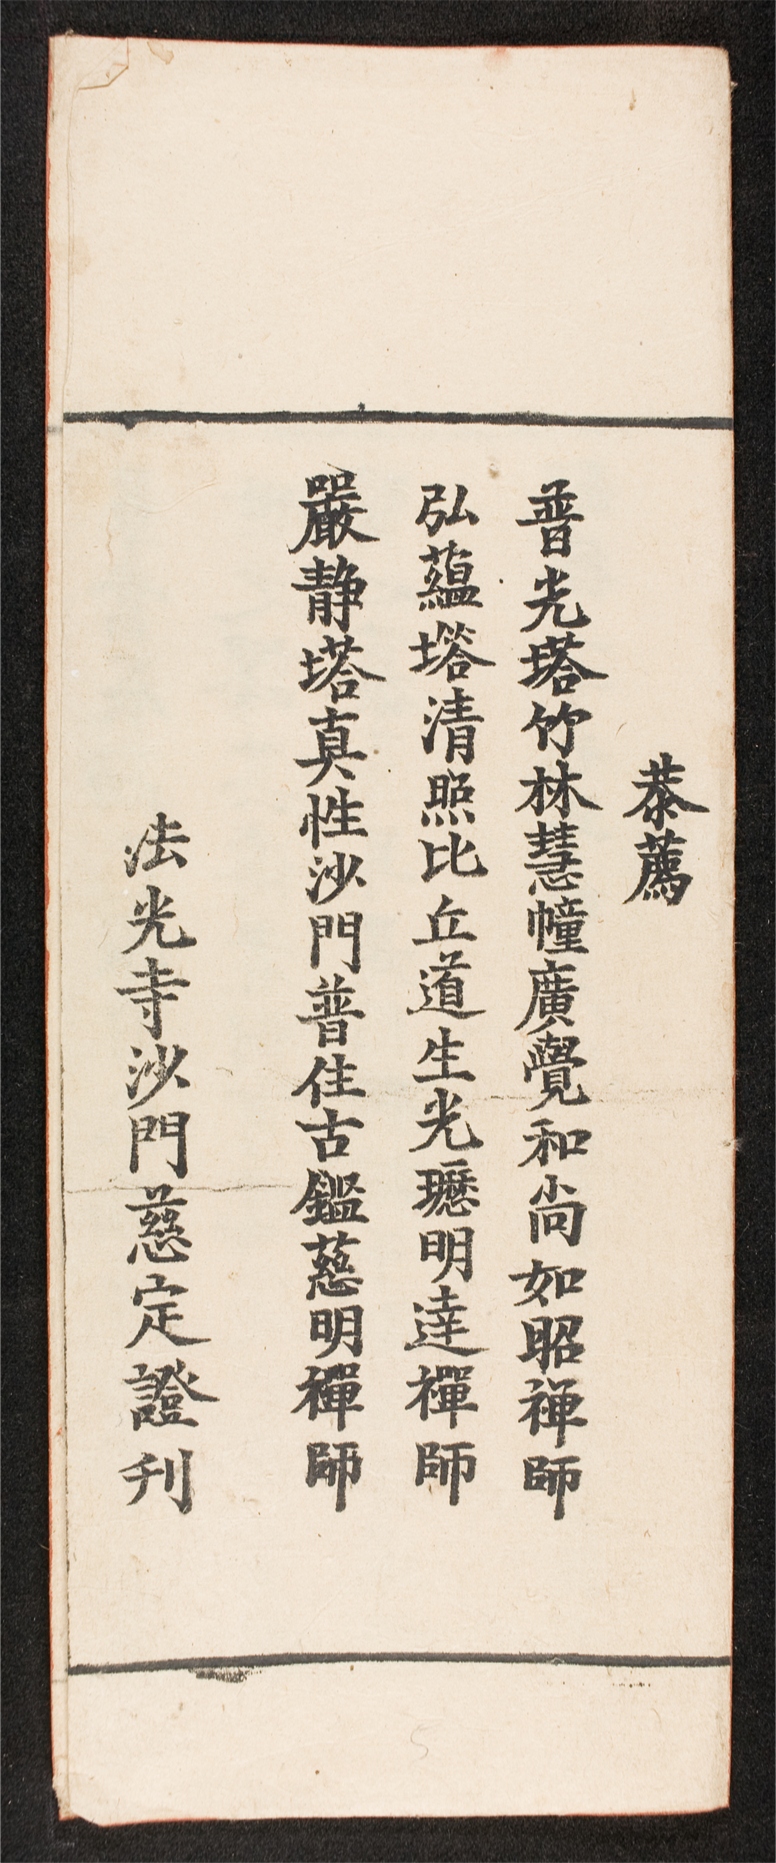 恭薦
普光塔竹林慧幢廣覺和尚如昭禅師
弘蘊塔清照比丘道生光瓋明達禪師
嚴静塔真性沙門普住古鑑慈明禪師
法光寺沙門慈定證刊
5